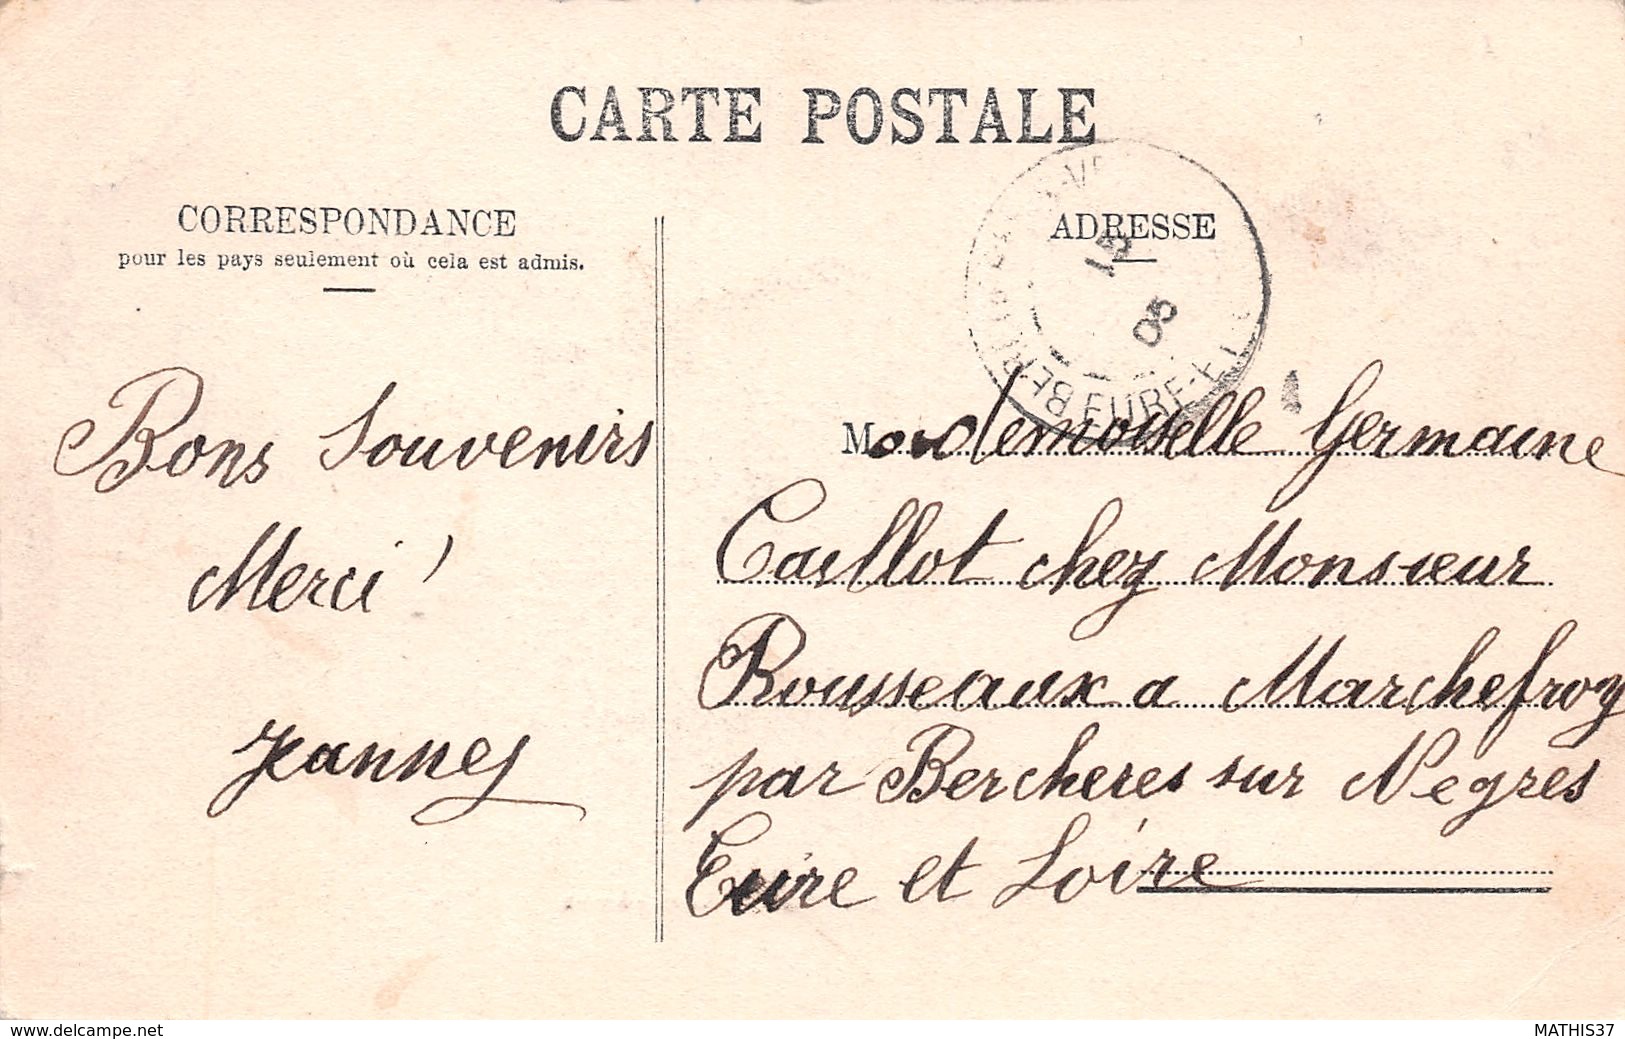 CARTE POSTALE
CORRESPONDANCE
pour les pays seulement où cela est admis.
ADRESSE
15
05
EURE-E
Bons Souvenirs
Merci !
Mademoiselle Germaine
Caillot chez Monsieur
Rousseaux a Marchefroy
par Bercheres sur Negres
Eure et Loire
www.delcampe.net
MATHIS37